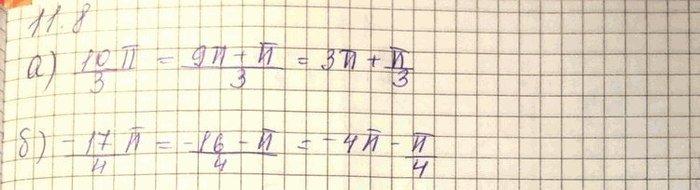 11.8
а) 10π/3 = 9π+π/3 = 3π + π/3
б) -17π/4 = -16-π/4 = -4π - π/4